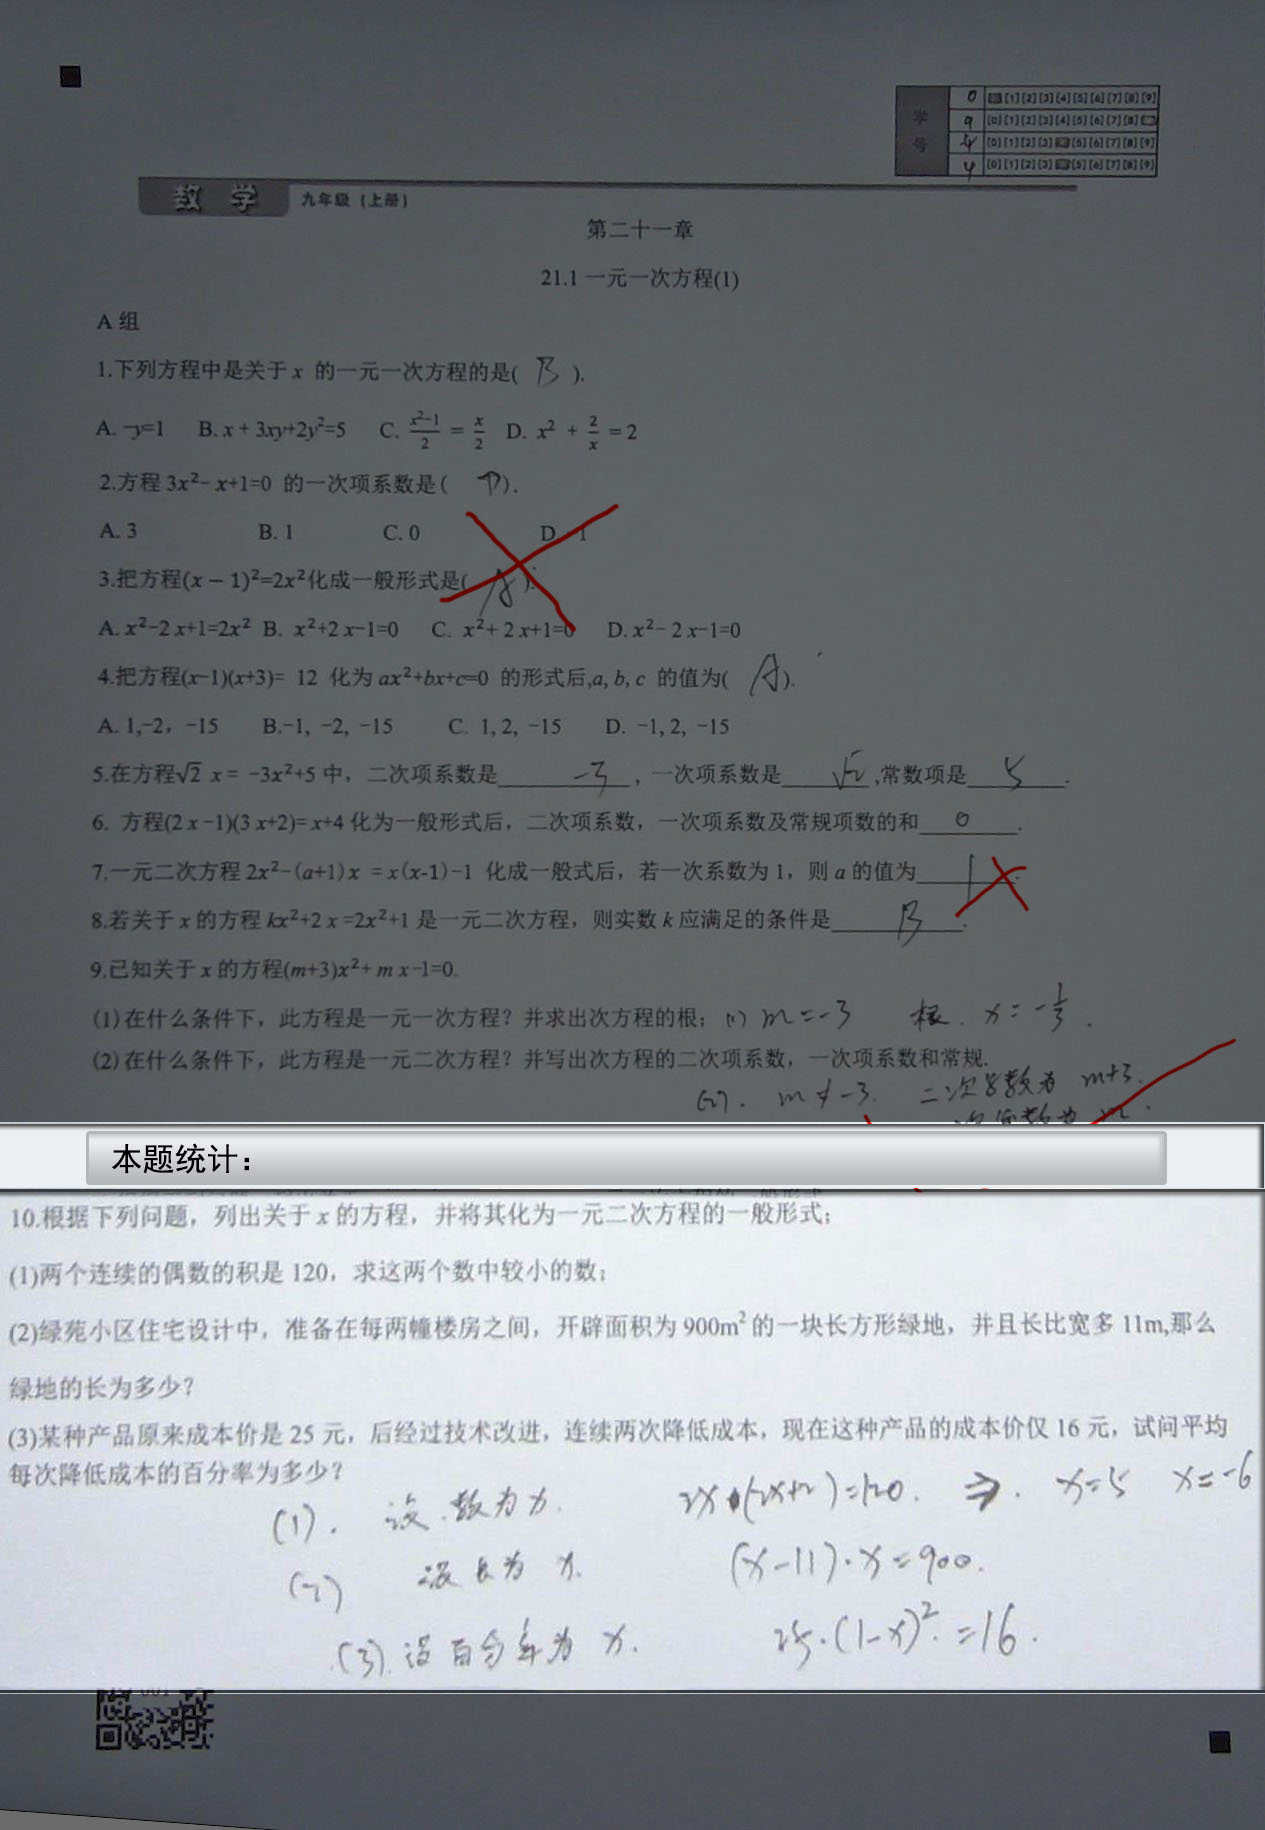 学号
0 [1][2][3][4][5][6][7][8][9]
9 [0][1][2][3][4][5][6][7][8]
4 [0][1][2][3][5][6][7][8][9]
4 [0][1][2][3][5][6][7][8][9]
数 学 九年级（上册）
第二十一章
21.1 一元一次方程(1)
A 组
1.下列方程中是关于 x 的一元一次方程的是( B ).
A. -y=1 B. x + 3xy+2y²=5 C. (x²-1)/2 = x/2 D. x² + 2/x = 2
2.方程 3x²- x+1=0 的一次项系数是( D ).
A. 3 B. 1 C. 0 D. 1
3.把方程(x − 1)²=2x²化成一般形式是( A ).
A. x²-2 x+1=2x² B. x²+2 x-1=0 C. x²+ 2 x+1=0 D. x²- 2 x-1=0
4.把方程(x-1)(x+3)= 12 化为 ax²+bx+c=0 的形式后,a, b, c 的值为( A ).
A. 1,-2，-15 B.-1, -2, -15 C. 1, 2, -15 D. -1, 2, -15
5.在方程√2 x = -3x²+5 中，二次项系数是 -3 ，一次项系数是 √2 ,常数项是 5 .
6. 方程(2 x -1)(3 x+2)= x+4 化为一般形式后，二次项系数，一次项系数及常规项数的和 0 .
7.一元二次方程 2x²-(a+1)x = x(x-1)-1 化成一般式后，若一次系数为 1，则 a 的值为 1 .
8.若关于 x 的方程 kx²+2 x =2x²+1 是一元二次方程，则实数 k 应满足的条件是 B .
9.已知关于 x 的方程(m+3)x²+ m x -1=0.
(1)在什么条件下，此方程是一元一次方程？并求出次方程的根； (1) m=-3 根. x=-1/3 .
(2)在什么条件下，此方程是一元二次方程？并写出次方程的二次项系数，一次项系数和常规.
(2). m≠-3. 二次系数为 m+3.
本题统计：
10.根据下列问题，列出关于 x 的方程，并将其化为一元二次方程的一般形式；
(1)两个连续的偶数的积是 120，求这两个数中较小的数；
(2)绿苑小区住宅设计中，准备在每两幢楼房之间，开辟面积为 900m² 的一块长方形绿地，并且长比宽多 11m,那么
绿地的长为多少？
(3)某种产品原来成本价是 25 元，后经过技术改进，连续两次降低成本，现在这种产品的成本价仅 16 元，试问平均
每次降低成本的百分率为多少？
(1). 设.数为x. 2x·(2x+2)=120. ⇒. x=5 x=-6
(2) 设长为 x. (x-11)·x=900.
(3).设百分率为 x. 25·(1-x)²=16.
001